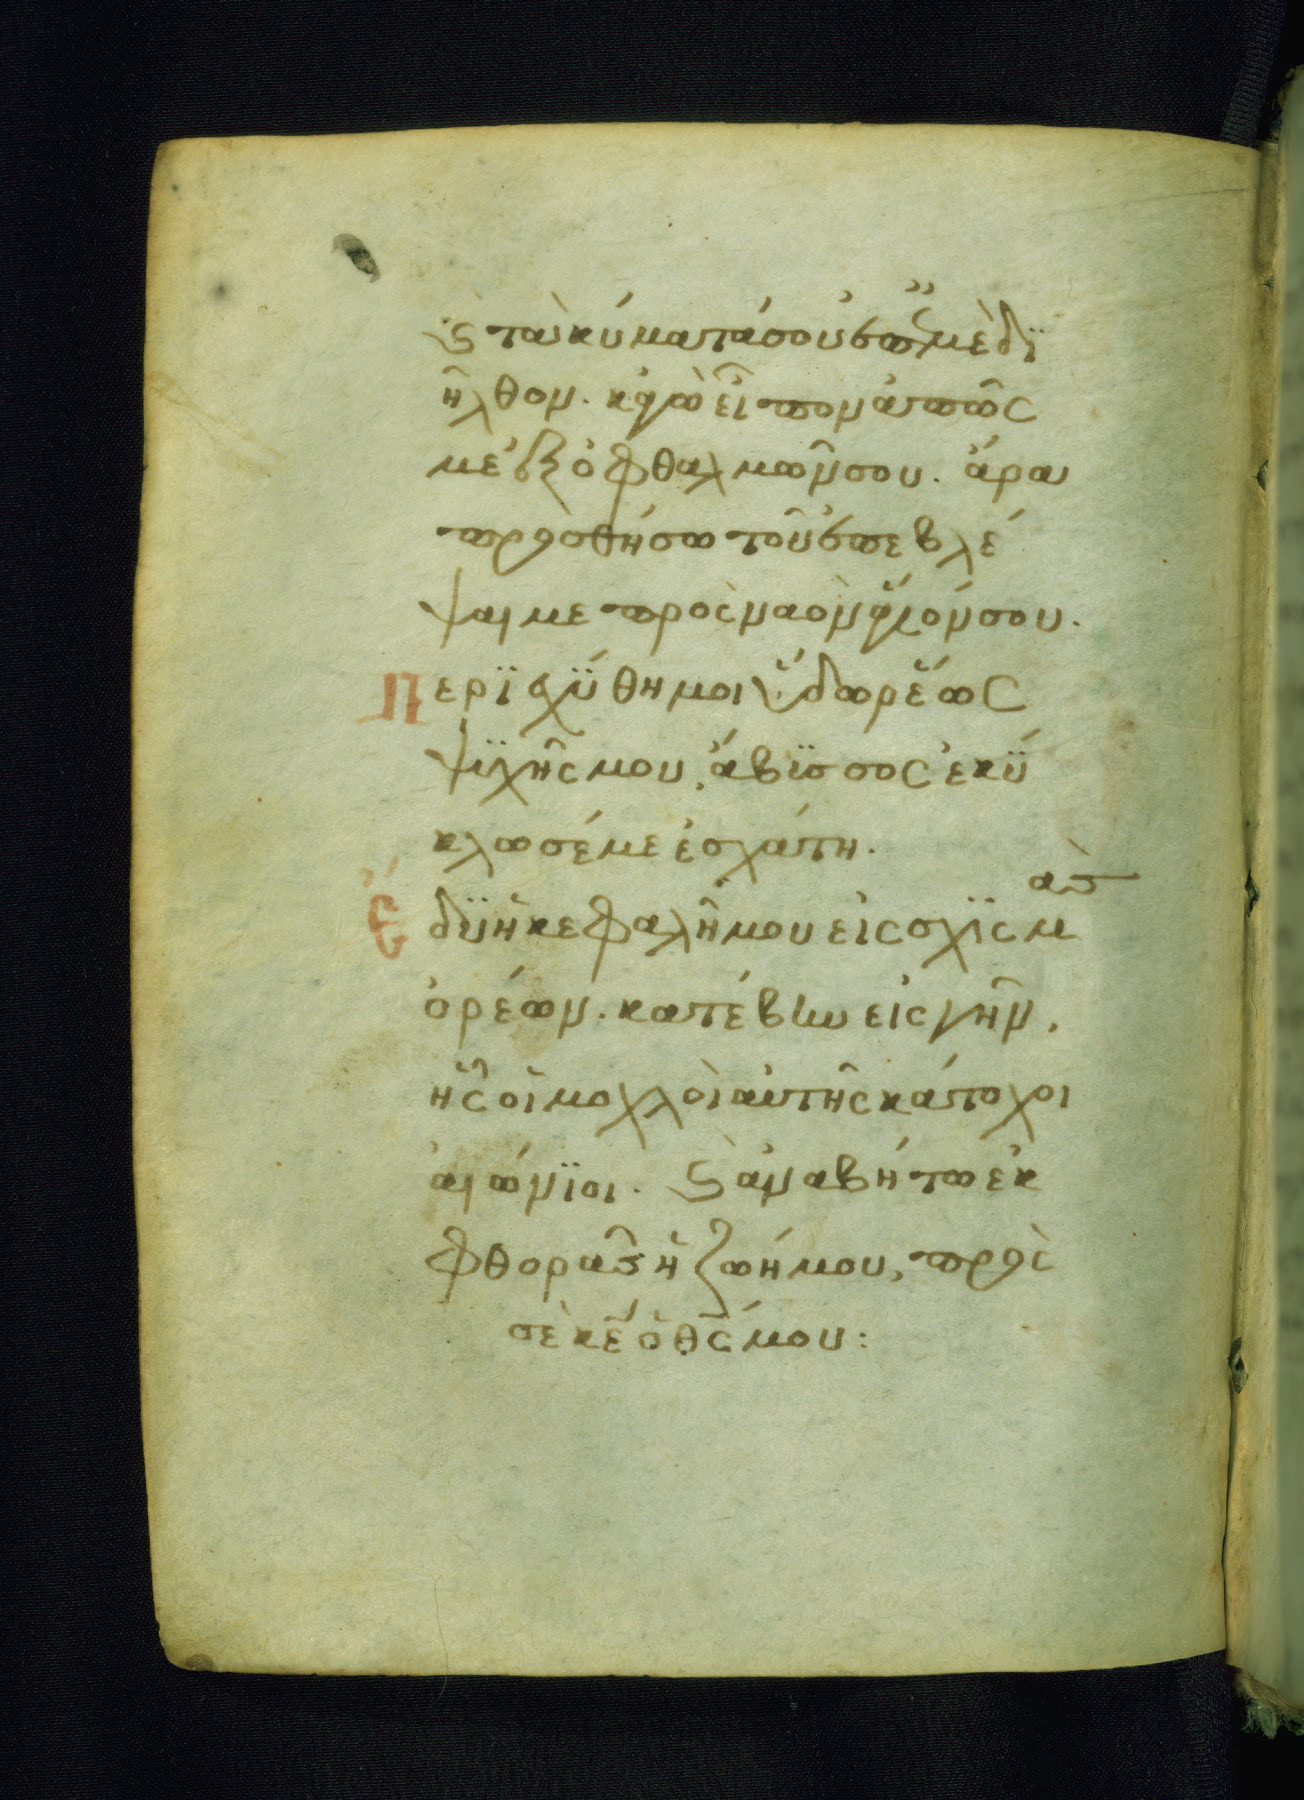 ϛ τὰ κύματά σου ἐπ ἐμὲ δϊ
ῆλθον. κἀγὼ εἶπον ἀπῶς
μέ ἐξ ὀφθαλμῶν σου. ἄρα
προσθήσω τοῦ ἐπεβλέ
ψαι με πρὸς ναὸν ἅγιόν σου.
Περϊχΰθη μοι ὕδωρ ἕως
ψϋχῆς μου, ἄβϊσσος ἐκΰ
κλωσέ με ἐσχάτη.
Ἔδϋ ἡ κεφαλῆ μου εἰς σχϊσμὰς
ὀρέων. κατέβην εἰς γῆν,
ἧς οἱ μοχλοὶ αὐτῆς κάτοχοι
αἰώνϊοι. ϛ ἀναβήτω ἐκ
φθορᾶς ἡ ζωή μου, πρὸς
σὲ κε ὁ θς μου: